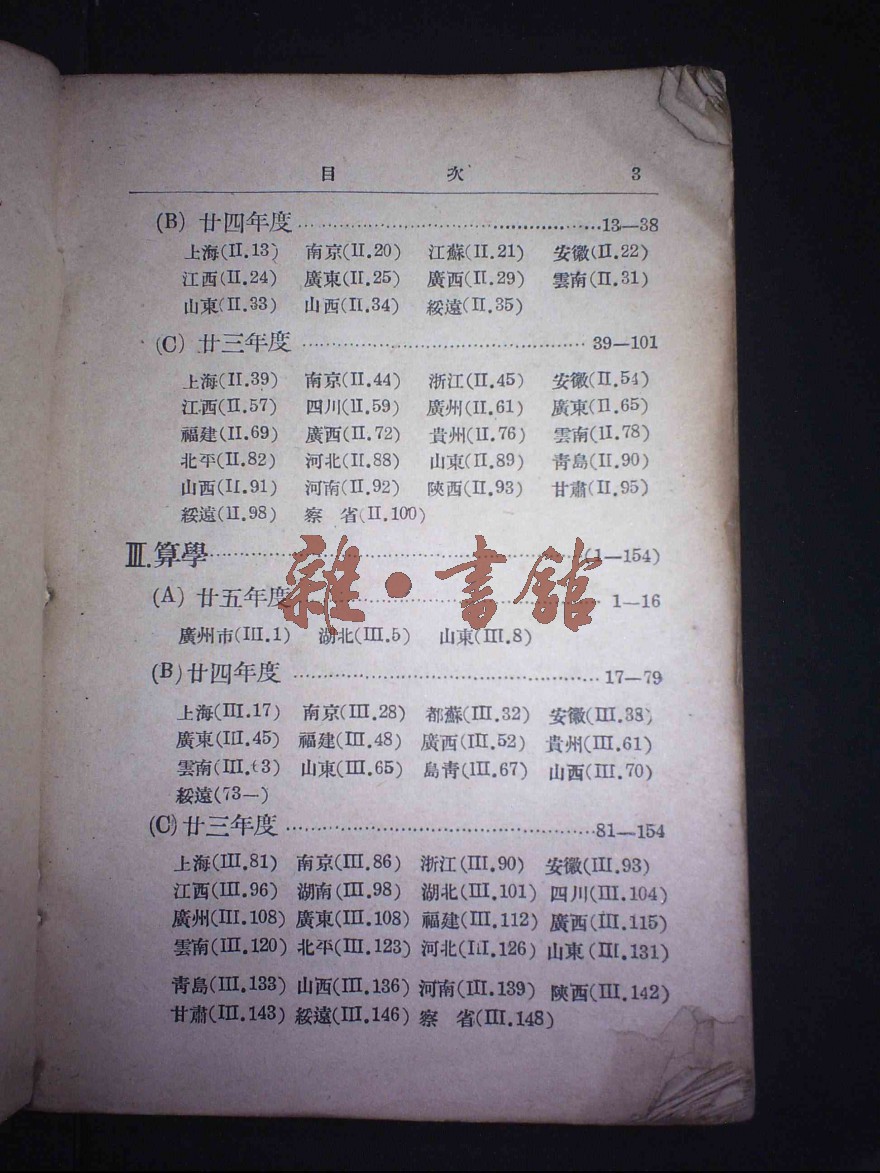 目 次 3
(B) 廿四年度……………………………13—38
上海(II.13) 南京(II.20) 江蘇(II.21) 安徽(II.22)
江西(II.24) 廣東(II.25) 廣西(II.29) 雲南(II.31)
山東(II.33) 山西(II.34) 綏遠(II.35)
(C) 廿三年度……………………………39—101
上海(II.39) 南京(II.44) 浙江(II.45) 安徽(II.54)
江西(II.57) 四川(II.59) 廣州(II.61) 廣東(II.65)
福建(II.69) 廣西(II.72) 貴州(II.76) 雲南(II.78)
北平(II.82) 河北(II.88) 山東(II.89) 青島(II.90)
山西(II.91) 河南(II.92) 陝西(II.93) 甘肅(II.95)
綏遠(II.98) 察 省(II.100)
III.算學……………………………(1—154)
雜·書館
(A) 廿五年度……………………………1—16
廣州市(III.1) 湖北(III.5) 山東(III.8)
(B)廿四年度……………………………17—79
上海(III.17) 南京(III.28) 都蘇(III.32) 安徽(III.38)
廣東(III.45) 福建(III.48) 廣西(III.52) 貴州(III.61)
雲南(III.63) 山東(III.65) 島靑(III.67) 山西(III.70)
綏遠(73—)
(C)廿三年度……………………………81—154
上海(III.81) 南京(III.86) 浙江(III.90) 安徽(III.93)
江西(III.96) 湖南(III.98) 湖北(III.101) 四川(III.104)
廣州(III.108) 廣東(III.108) 福建(III.112) 廣西(III.115)
雲南(III.120) 北平(III.123) 河北(III.126) 山東(III.131)
靑島(III.133) 山西(III.136) 河南(III.139) 陝西(III.142)
甘肅(III.143) 綏遠(III.146) 察 省(III.148)